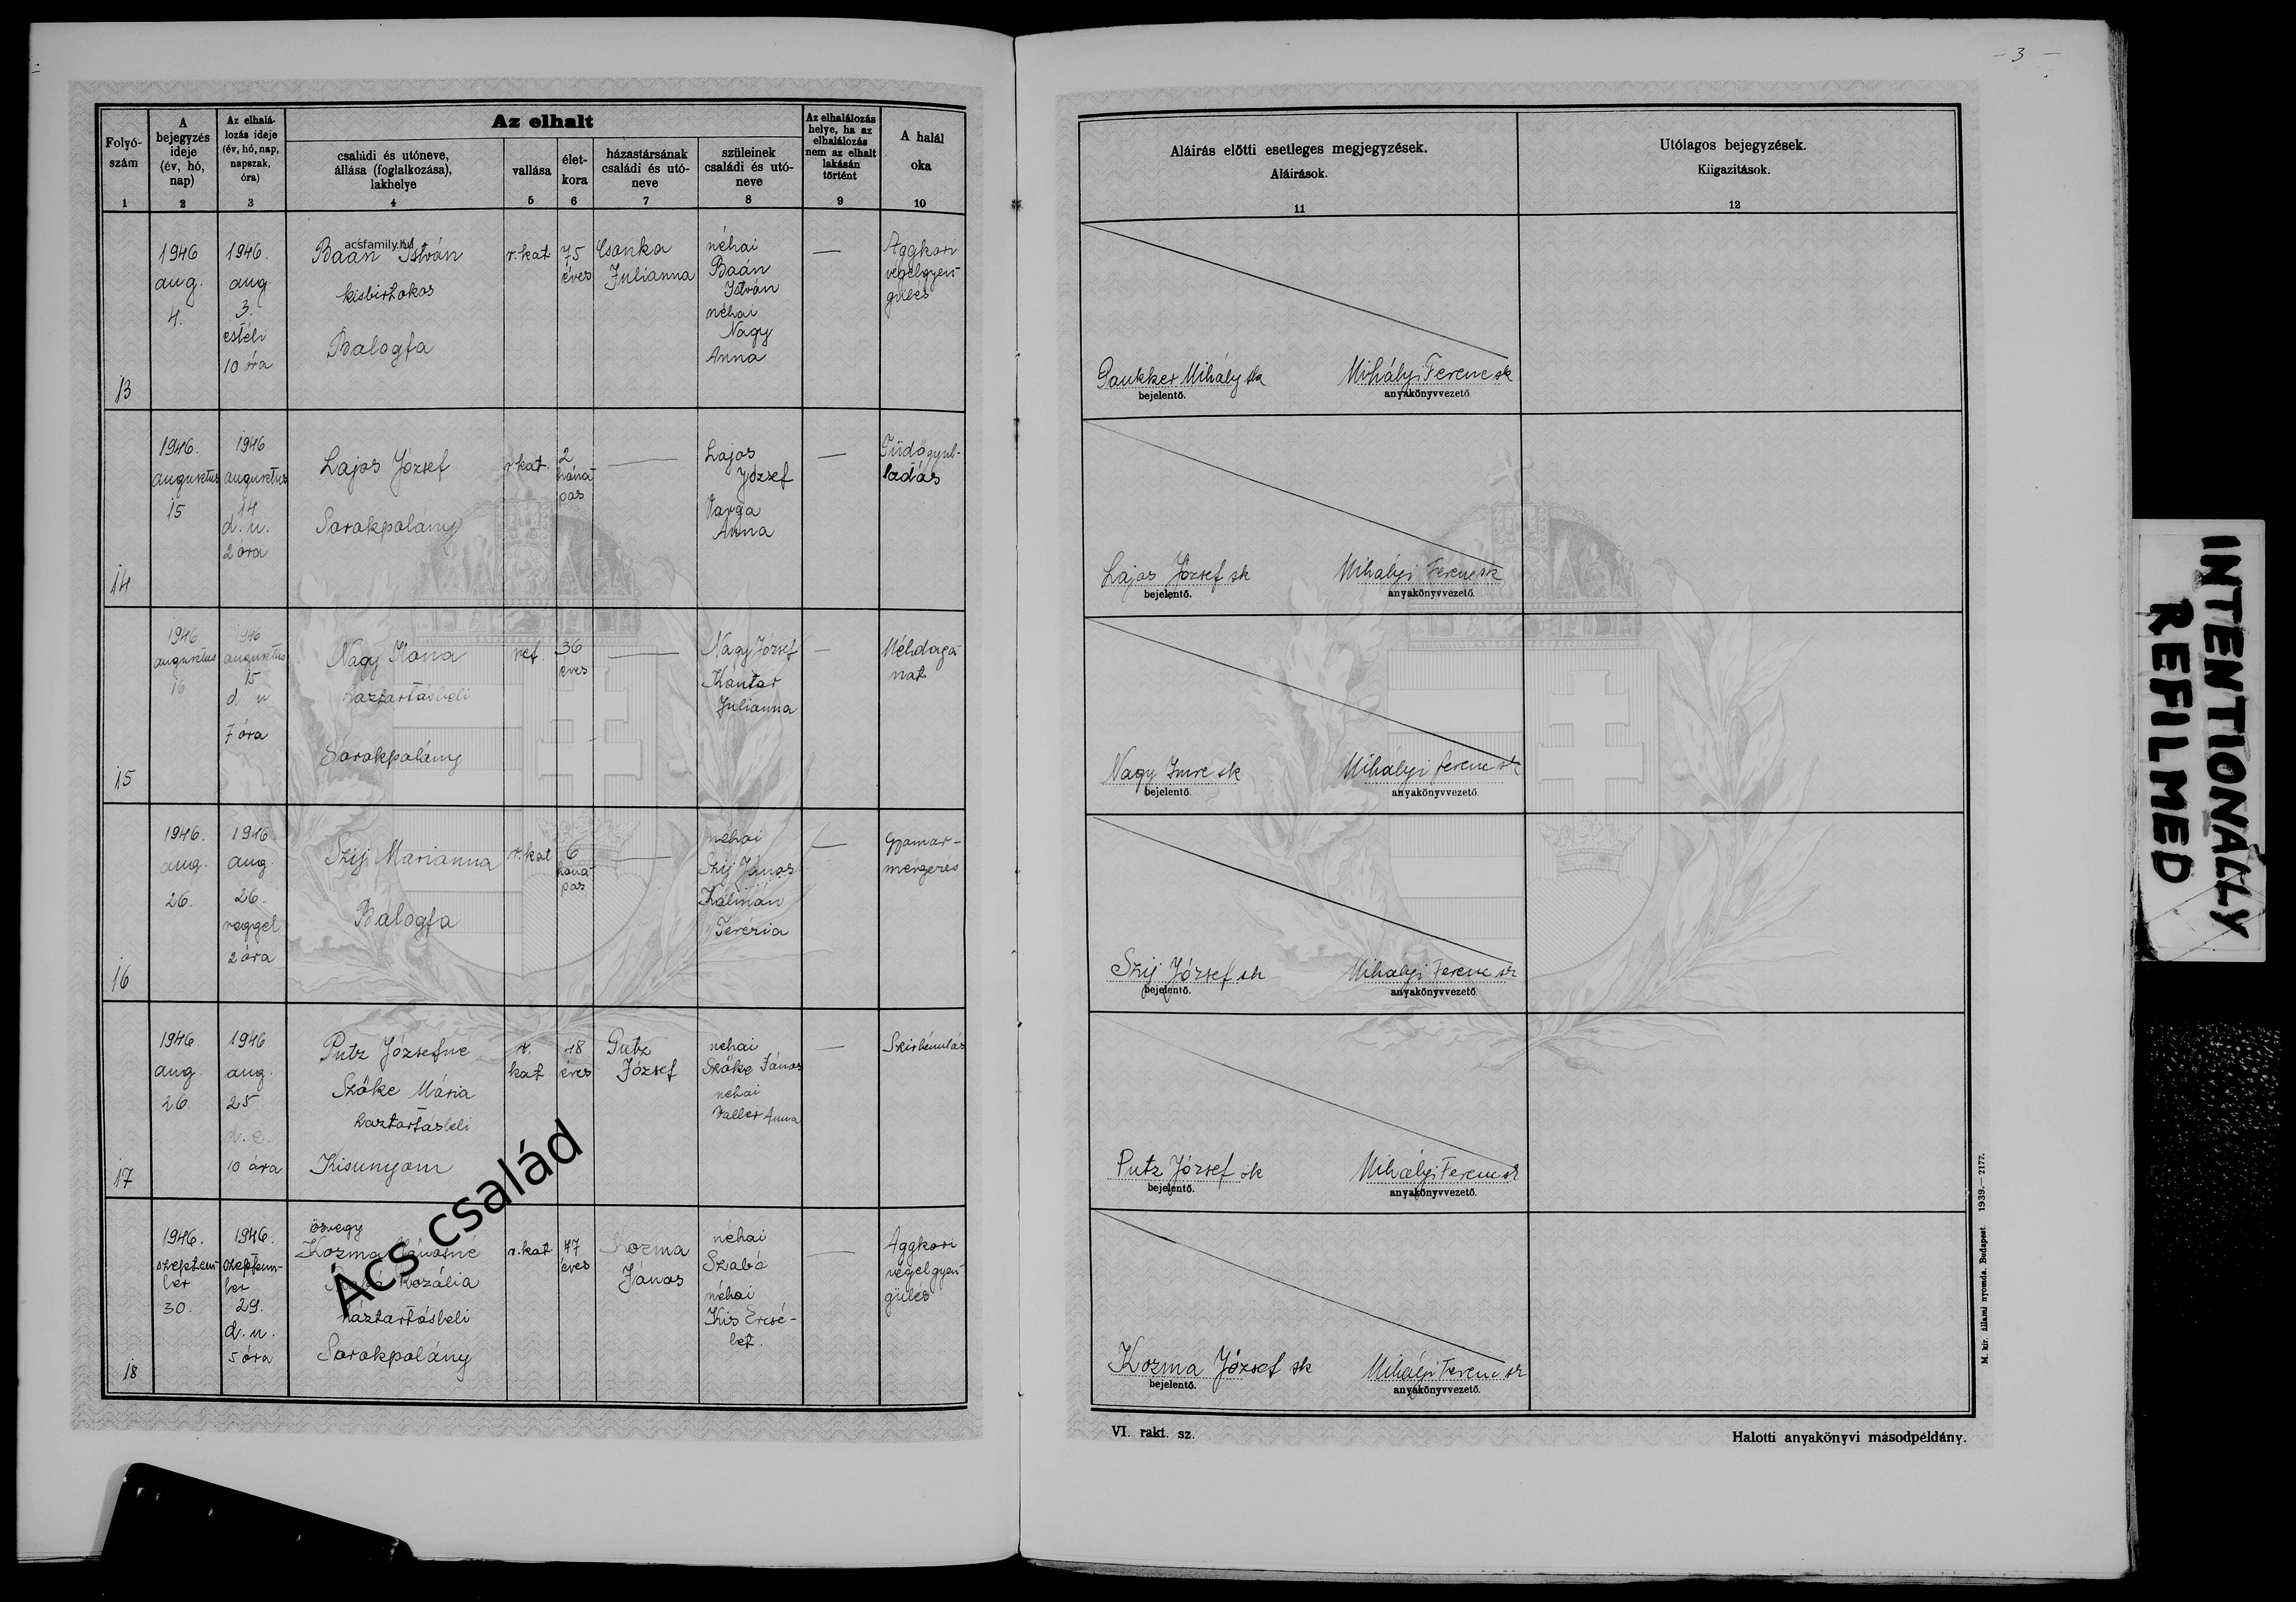 - 3 -
Folyó-
szám
1
A
bejegyzés
ideje
(év, hó,
nap)
2
Az elhalá-
lozás ideje
(év, hó, nap,
napszak,
óra)
3
Az elhalt
családi és utóneve,
állása (foglalkozása),
lakhelye
4
vallása
5
élet-
kora
6
házastársának
családi és utó-
neve
7
szüleinek
családi és utó-
neve
8
Az elhalálozás
helye, ha az
elhalálozás
nem az elhalt
lakásán
történt
9
A halál
oka
10
Aláírás előtti esetleges megjegyzések.
Aláírások.
11
Utólagos bejegyzések.
Kiigazítások.
12
13
1946
aug.
4.
1946.
aug.
3.
estéli
10 óra
acsfamily.hu
Baán István
kisbirtokos
Balogfa
r. kat
75
éves
Csonka
Julianna
néhai
Baán
István
néhai
Nagy
Anna
—
Aggkori
végelgyen-
gülés
Gaukker Mihály sk
bejelentő.
Mihályi Ferenc sk
anyakönyvvezető
14
1946.
augusztus
15
1946
augusztus
14
d. u.
2 óra
Lajos József
Sorokpolány
r kat.
2
hóna-
pos
—
Lajos
József
Varga
Anna
—
Tüdőgyul-
ladás
Lajos József sk
bejelentő.
Mihályi Ferenc sk
anyakönyvvezető.
15
1946
augusztus
16
1946
augusztus
15
d u
7 óra
Nagy Ilona
háztartásbeli
Sorokpolány
ref.
36
éves
—
Nagy József
Kantar
Julianna
—
Méhdaga
nat
Nagy Imre sk
bejelentő.
Mihályi Ferenc sk
anyakönyvvezető.
16
1946.
aug.
26.
1946.
aug.
26.
reggel
2 óra
Szij Marianna
Balogfa
r. kat
6
hóna-
pos
—
néhai
Szij János
Kálmán
Terézia
—
Gyomor-
mérgezés
Szij József sk
bejelentő.
Mihályi Ferenc sk
anyakönyvvezető
17
1946.
aug.
26.
1946
aug.
25
d. e.
10 óra
Putz Józsefné
Szőke Mária
háztartásbeli
Kisunyom
r.
kat
48
éves
Putz
József
néhai
Szőke János
néhai
Valler Anna
—
Szivbénulás
Putz József sk
bejelentő.
Mihályi Ferenc sk
anyakönyvvezető.
18
1946.
szeptem-
ber
30.
1946.
szeptem-
ber
29.
d. u.
5 óra
özvegy
Kozma Jánosné
Szabó Rozália
háztartásbeli
Sorokpolány
r. kat
77
éves
Kozma
János
néhai
Szabó
néhai
Kis Erzsé-
bet.
—
Aggkori
végelgyen-
gülés
Kozma József sk
bejelentő.
Mihályi Ferenc sk
anyakönyvvezető.
Ács család
VI. rakt. sz.
Halotti anyakönyvi másodpéldány.
M. kir. állami nyomda. Budapest 1939.—2177.
INTENTIONALLY
REFILMED